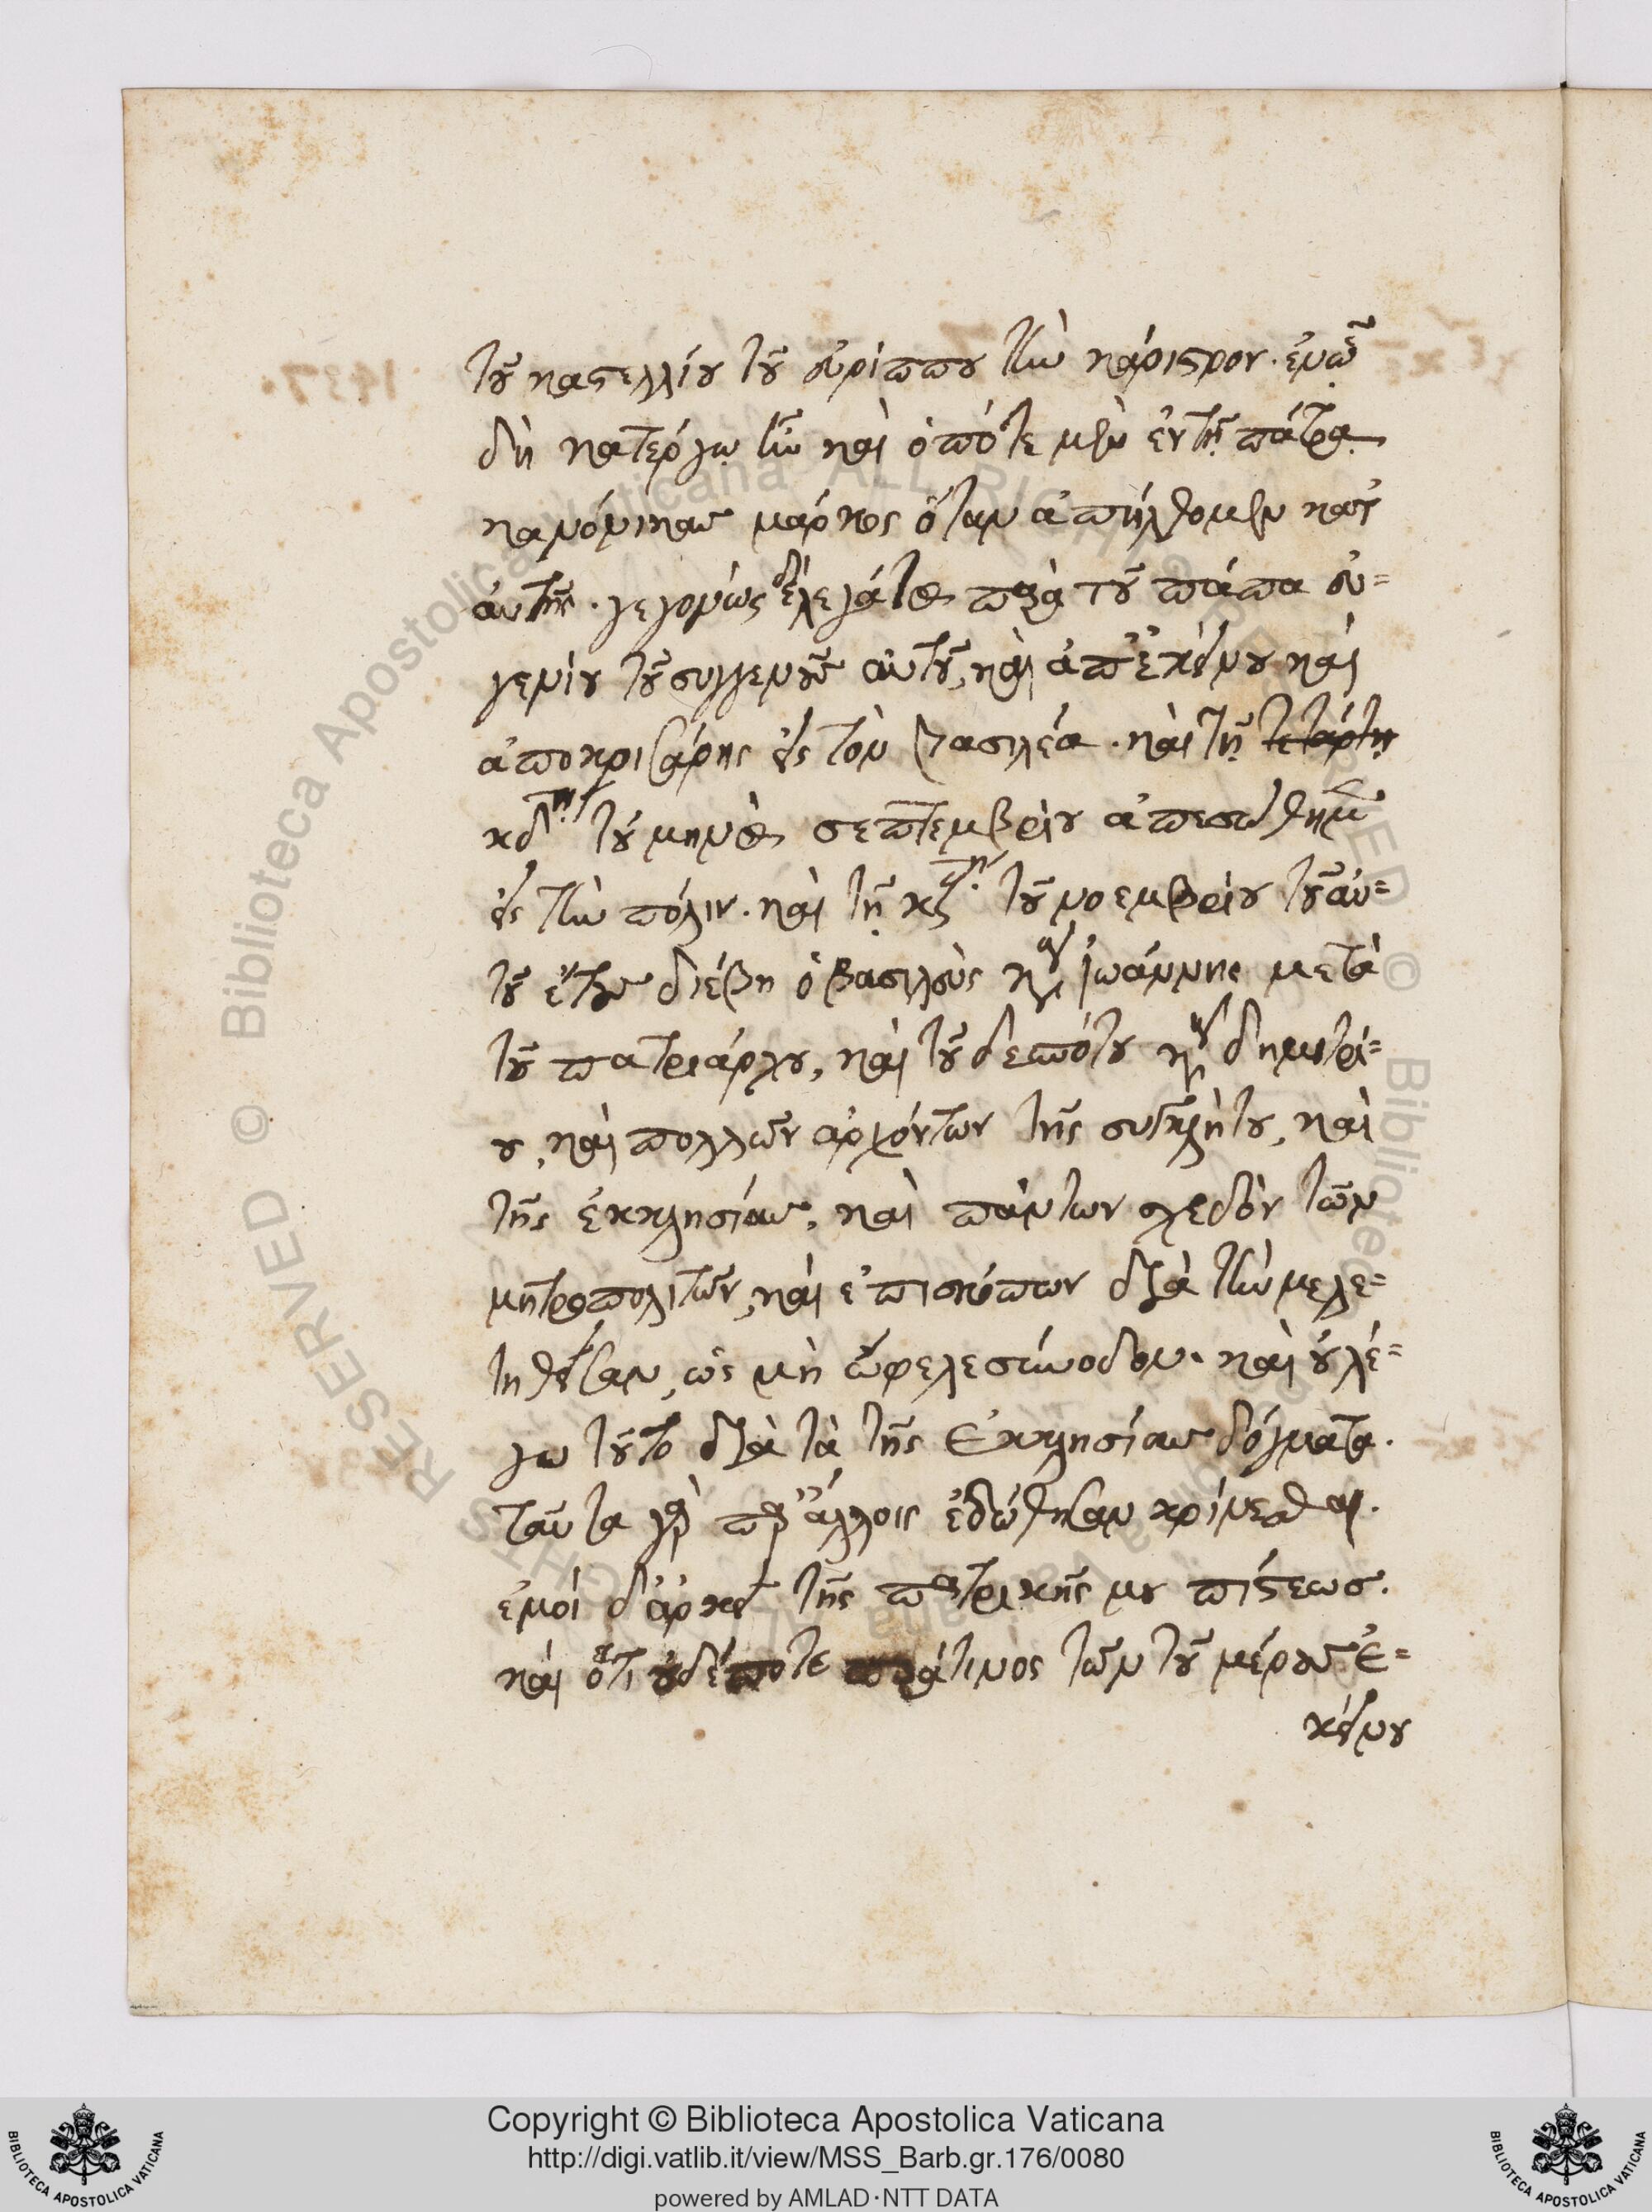 τοῦ καστελλίου τοῦ εὐρίππου τὴν κάριστον. ἐν ᾧ
δὴ κατέργῳ ἦν καὶ ὁπότε μὲν ἐν τῇ πάτρᾳ
κανόνικας μάρκος ὅταν ἀπήλθομεν κατ'
αὐτῆς. γεγονὼς δὲ λεγάτος παρὰ τοῦ πάπα εὐ=
γενίου τοῦ συγγενοῦς αὐτοῦ, καὶ ἀπ' ἐκείνου καὶ
ἀποκρισάρης εἰς τὸν βασιλέα. καὶ τῇ τετάρτῃ
κδῃ τοῦ μηνὸς σεπτεμβρίου ἀπεσώθημεν
εἰς τὴν πόλιν. καὶ τῇ κζῃ τοῦ νοεμβρίου τοῦ αὐ=
τοῦ ἔτους διέβη ὁ βασιλεὺς κὺρ ἰωάννης μετὰ
τοῦ πατριάρχου, καὶ τοῦ δεσπότου κὺρ δημητρί=
ου, καὶ πολλῶν ἀρχόντων τῆς συγκλήτου, καὶ
τῆς ἐκκλησίας, καὶ πάντων σχεδὸν τῶν
μητροπολιτῶν, καὶ ἐπισκόπων διὰ τὴν μελε=
τηθεῖσαν, ὡς μὴ ὤφελε σύνοδον. καὶ οὐ λέ=
γω τοῦτο διὰ τὰ τῆς ἐκκλησίας δόγματα.
ταῦτα γὰρ παρ' ἄλλοις ἐδώθησαν κρίνεσθαι.
ἐμοὶ δ' ἀρκεῖ τῆς πατρικῆς μου πίστεως.
καὶ ὅτι οὐδέποτε παρά τινος τῶν τοῦ μέρους ἐ=
κείνου
Copyright © Biblioteca Apostolica Vaticana
http://digi.vatlib.it/view/MSS_Barb.gr.176/0080
powered by AMLAD·NTT DATA